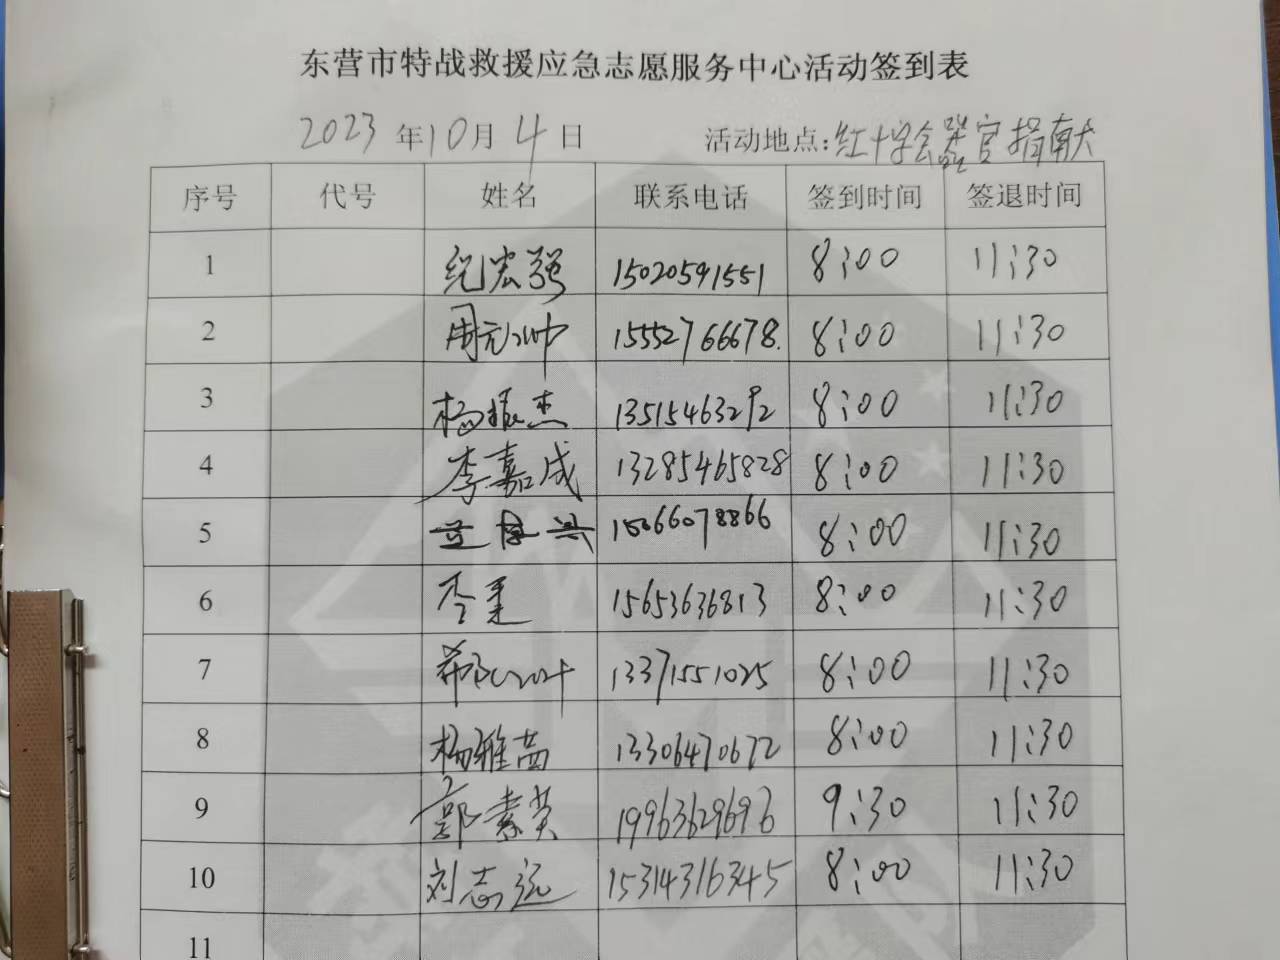 东营市特战救援应急志愿服务中心活动签到表
2023年10月4日 活动地点:红十字会器官捐献
序号 代号 姓名 联系电话 签到时间 签退时间
1 纪宏强 15020591551 8:00 11:30
2 周元帅 15552766678. 8:00 11:30
3 杨振杰 13515463292 8:00 11:30
4 李嘉成 13285465828 8:00 11:30
5 15066078866 8:00 11:30
6 李 15653636813 8:00 11:30
7 13371551025 8:00 11:30
8 杨雅茜 13306470672 8:00 11:30
9 郭素英 19963629696 9:30 11:30
10 刘志远 15314316345 8:00 11:30
11